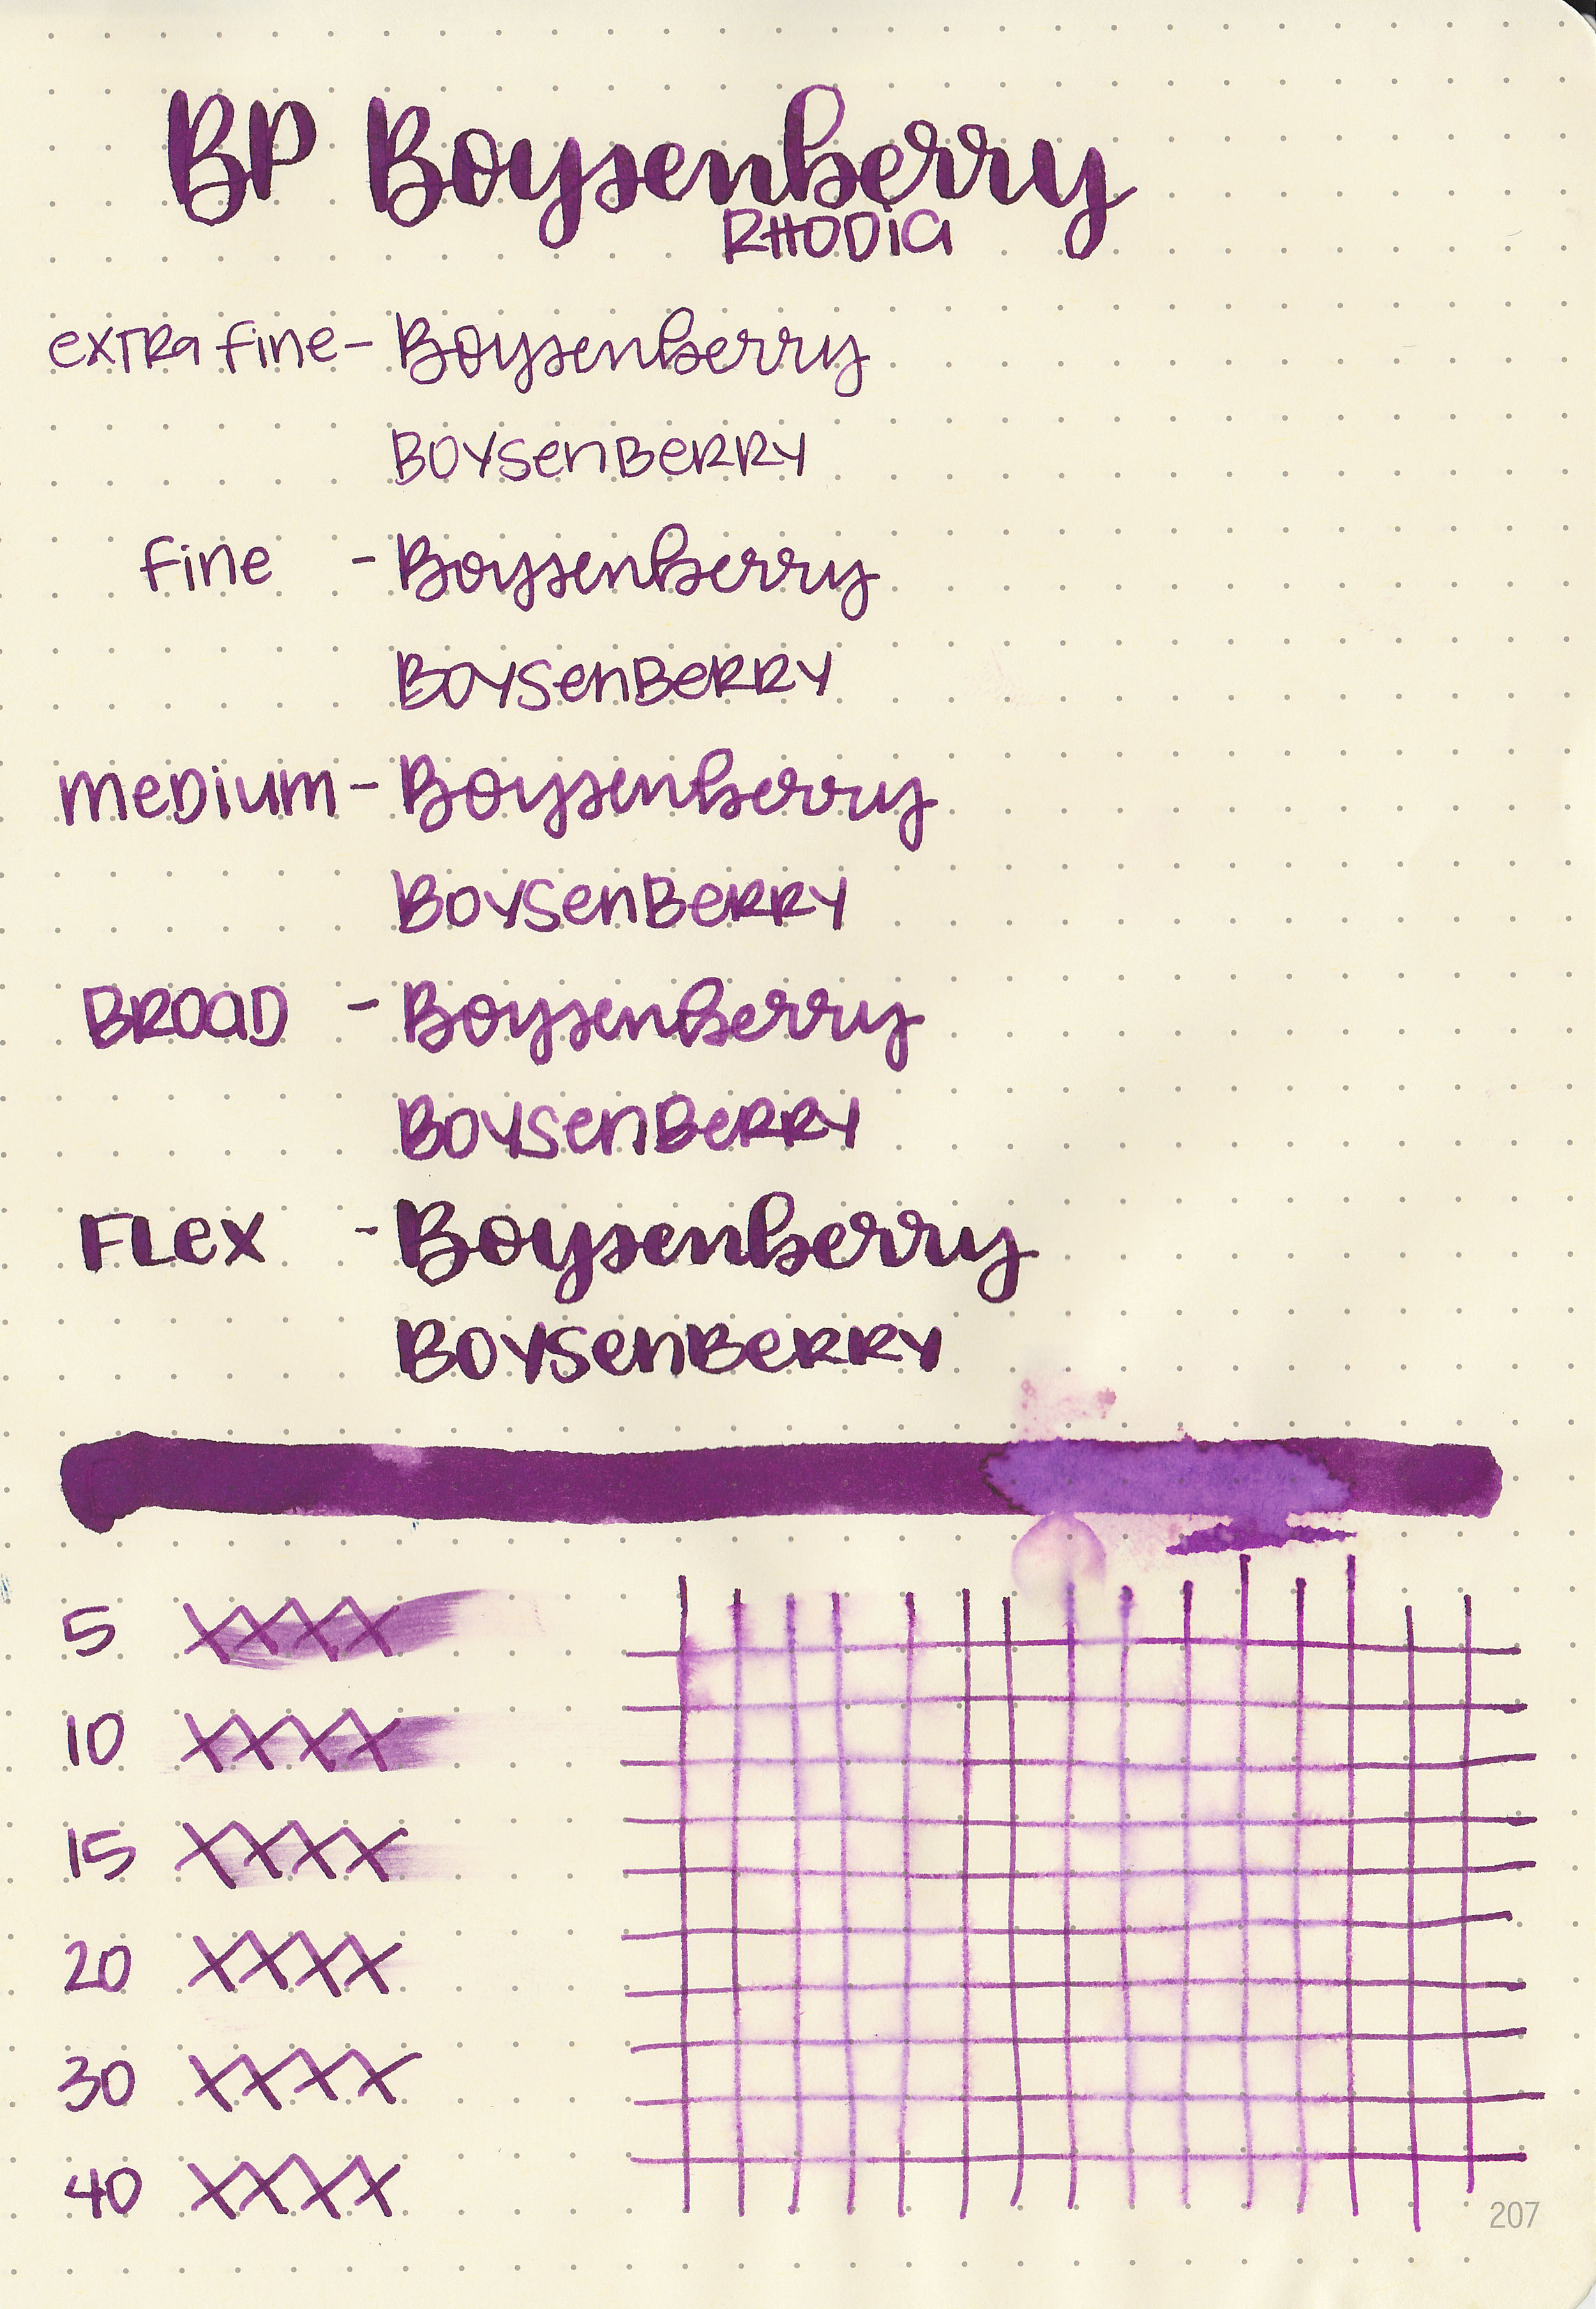 BP Boysenberry
RHODiA
eXTRa fine - Boysenberry
BOYSenBeRRY
fine - Boysenberry
BOYSenBeRRY
meDium - Boysenberry
BOYSenBeRRY
BROaD - Boysenberry
BOYSenBeRRY
FLeX - Boysenberry
BOYSenBeRRY
5 XXXX
10 XXXX
15 XXXX
20 XXXX
30 XXXX
40 XXXX
207